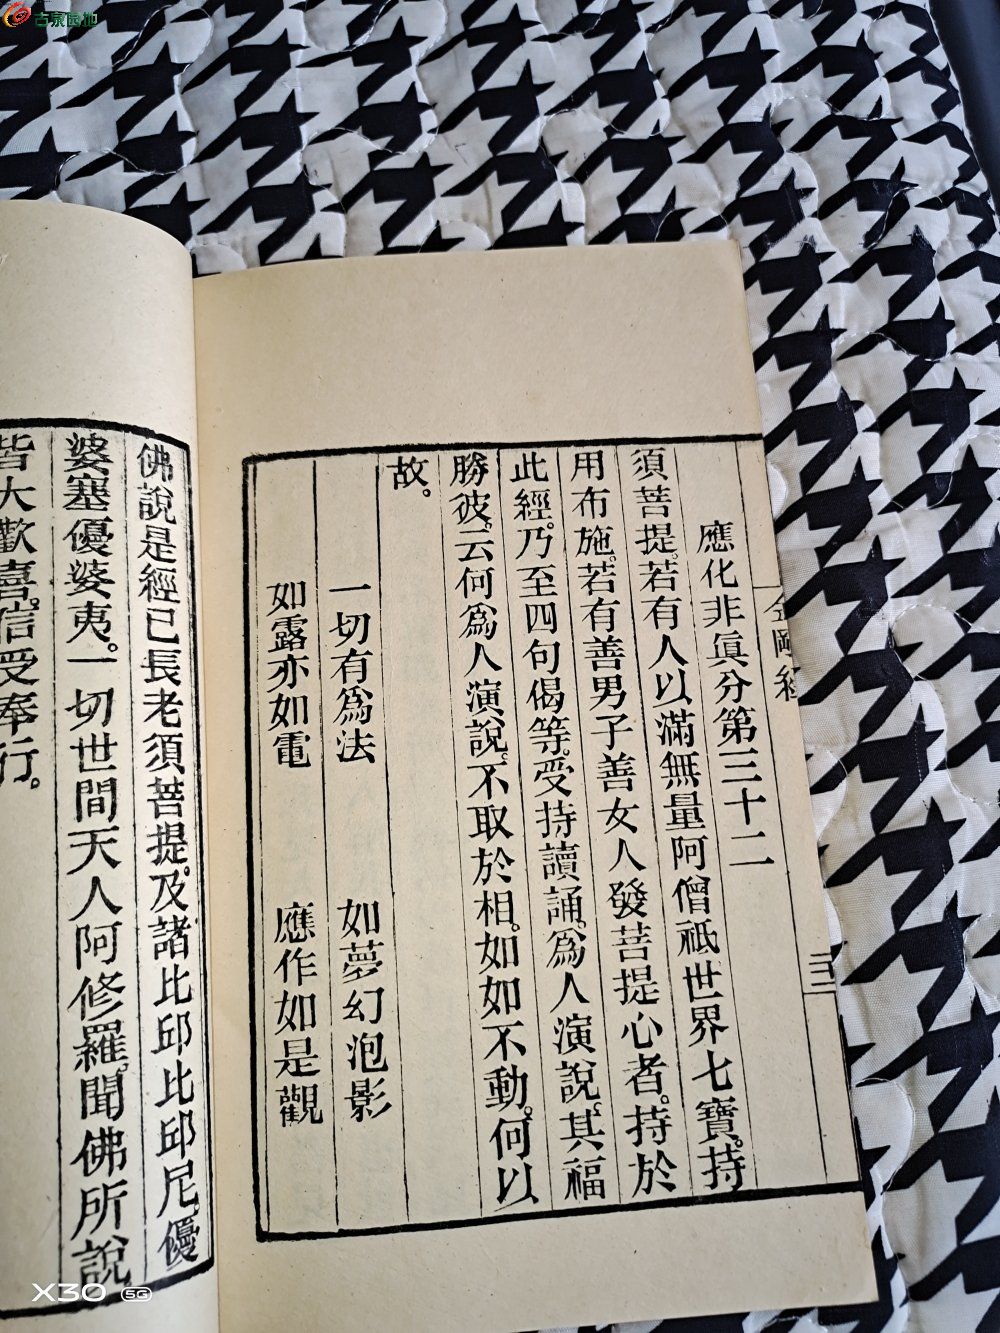 古泉园地
金剛經
三十二
應化非眞分第三十二
須菩提。若有人以滿無量阿僧祇世界七寶。持
用布施。若有善男子善女人發菩提心者。持於
此經。乃至四句偈等。受持讀誦。爲人演說。其福
勝彼。云何爲人演說。不取於相。如如不動。何以
故。
一切有爲法 如夢幻泡影
如露亦如電 應作如是觀
佛說是經已長老須菩提。及諸比邱比邱尼。優
婆塞優婆夷。一切世間天人阿修羅。聞佛所說
皆大歡喜。信受奉行。
X30 5G